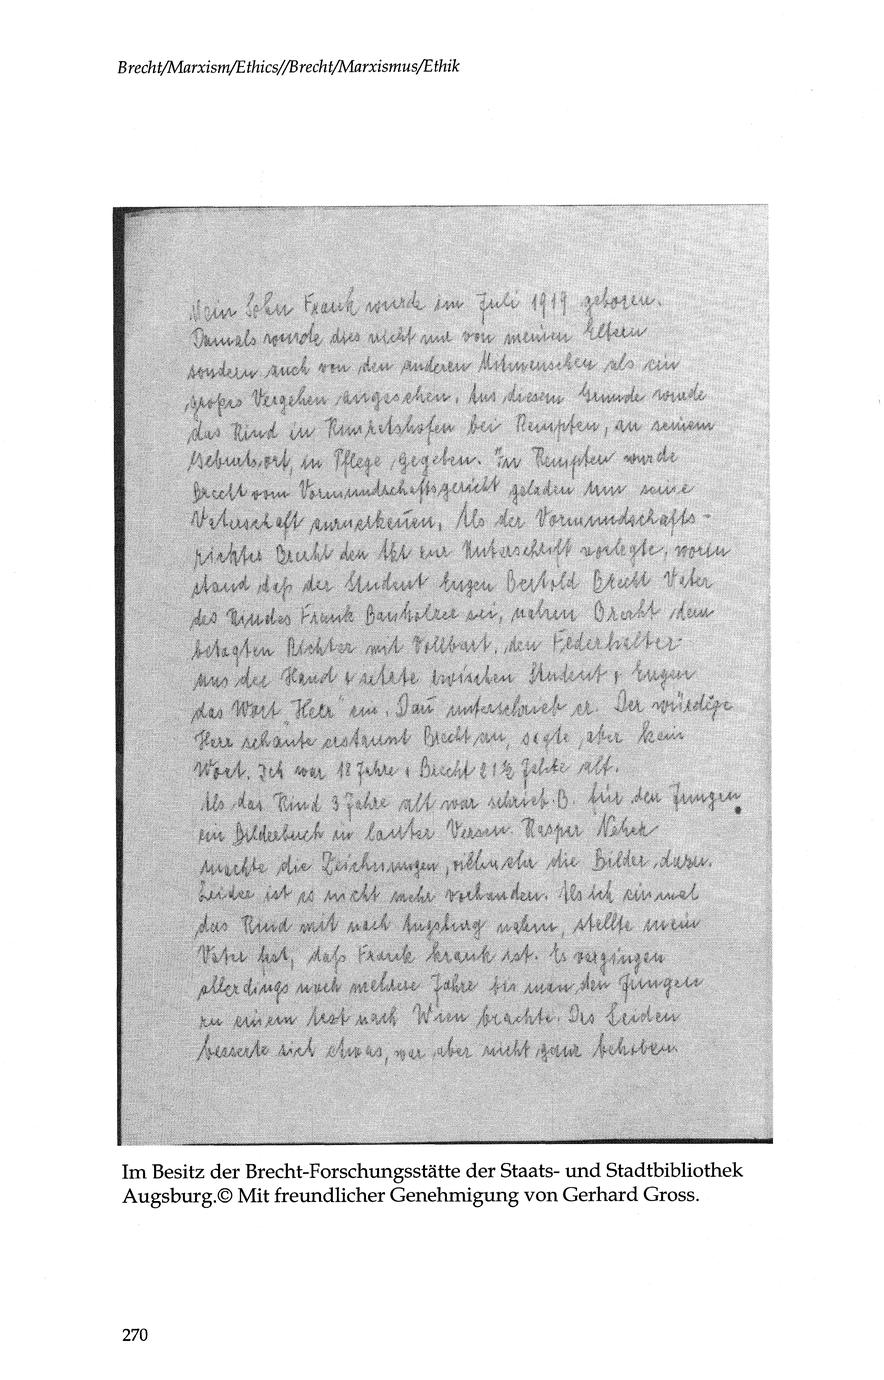 Brecht/Marxism/Ethics//Brecht/Marxismus/Ethik
Mein Sohn Frank wurde im Juli 1919 geboren.
Damals wurde dies nicht nur von meinen Eltern
sondern auch von den anderen Mitmenschen als ein
großes Vergehen angesehen. Aus diesem Grunde wurde
das Kind in Kimratshofen bei Kempten, an seinem
Geburtsort, in Pflege gegeben. In Kempten wurde
Brecht vom Vormundschaftsgericht geladen um seine
Vaterschaft anzuerkennen. Als der Vormundschafts-
richter Brecht den Akt zur Unterschrift vorlegte, worin
stand daß der Student Eugen Bertold Brecht Vater
des Kindes Frank Banholzer sei, nahm Brecht dem
betagten Richter mit Vollbart, den Federhalter
aus der Hand + setzte zwischen Student + Eugen
das Wort "Herr" ein. Dann unterschrieb er. Der würdige
Herr schaute erstaunt Brecht an, sagte aber kein
Wort. Ich war 18 Jahre + Brecht 21½ Jahre alt.
Als das Kind 3 Jahre alt war schrieb B. für den Jungen
ein Bilderbuch in lauter Versen. Kaspar Neher
machte die Zeichnungen, vielmehr die Bilder dazu.
Leider ist es nicht mehr vorhanden. Als ich einmal
das Kind mit nach Augsburg nahm, stellte mein
Vater fest, daß Frank krank ist. Es vergingen
allerdings noch mehrere Jahre bis man den Jungen
zu einem Arzt nach Wien brachte. Das Leiden
besserte sich etwas, war aber nicht ganz behoben.
Im Besitz der Brecht-Forschungsstätte der Staats- und Stadtbibliothek
Augsburg.© Mit freundlicher Genehmigung von Gerhard Gross.
270